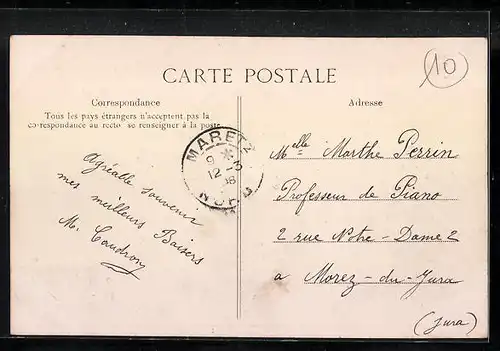 10
CARTE POSTALE
Correspondance
Tous les pays étrangers n'acceptent pas la
correspondance au recto, se renseigner à la poste
Adresse
MARETZ
9 *
12 - 3
08
NORD
Agréable souvenir
mes meilleurs Baisers
M. Caudron
Melle Marthe Perrin
Professeur de Piano
2 rue Notre-Dame 2
a Morez-du-Jura
(Jura)